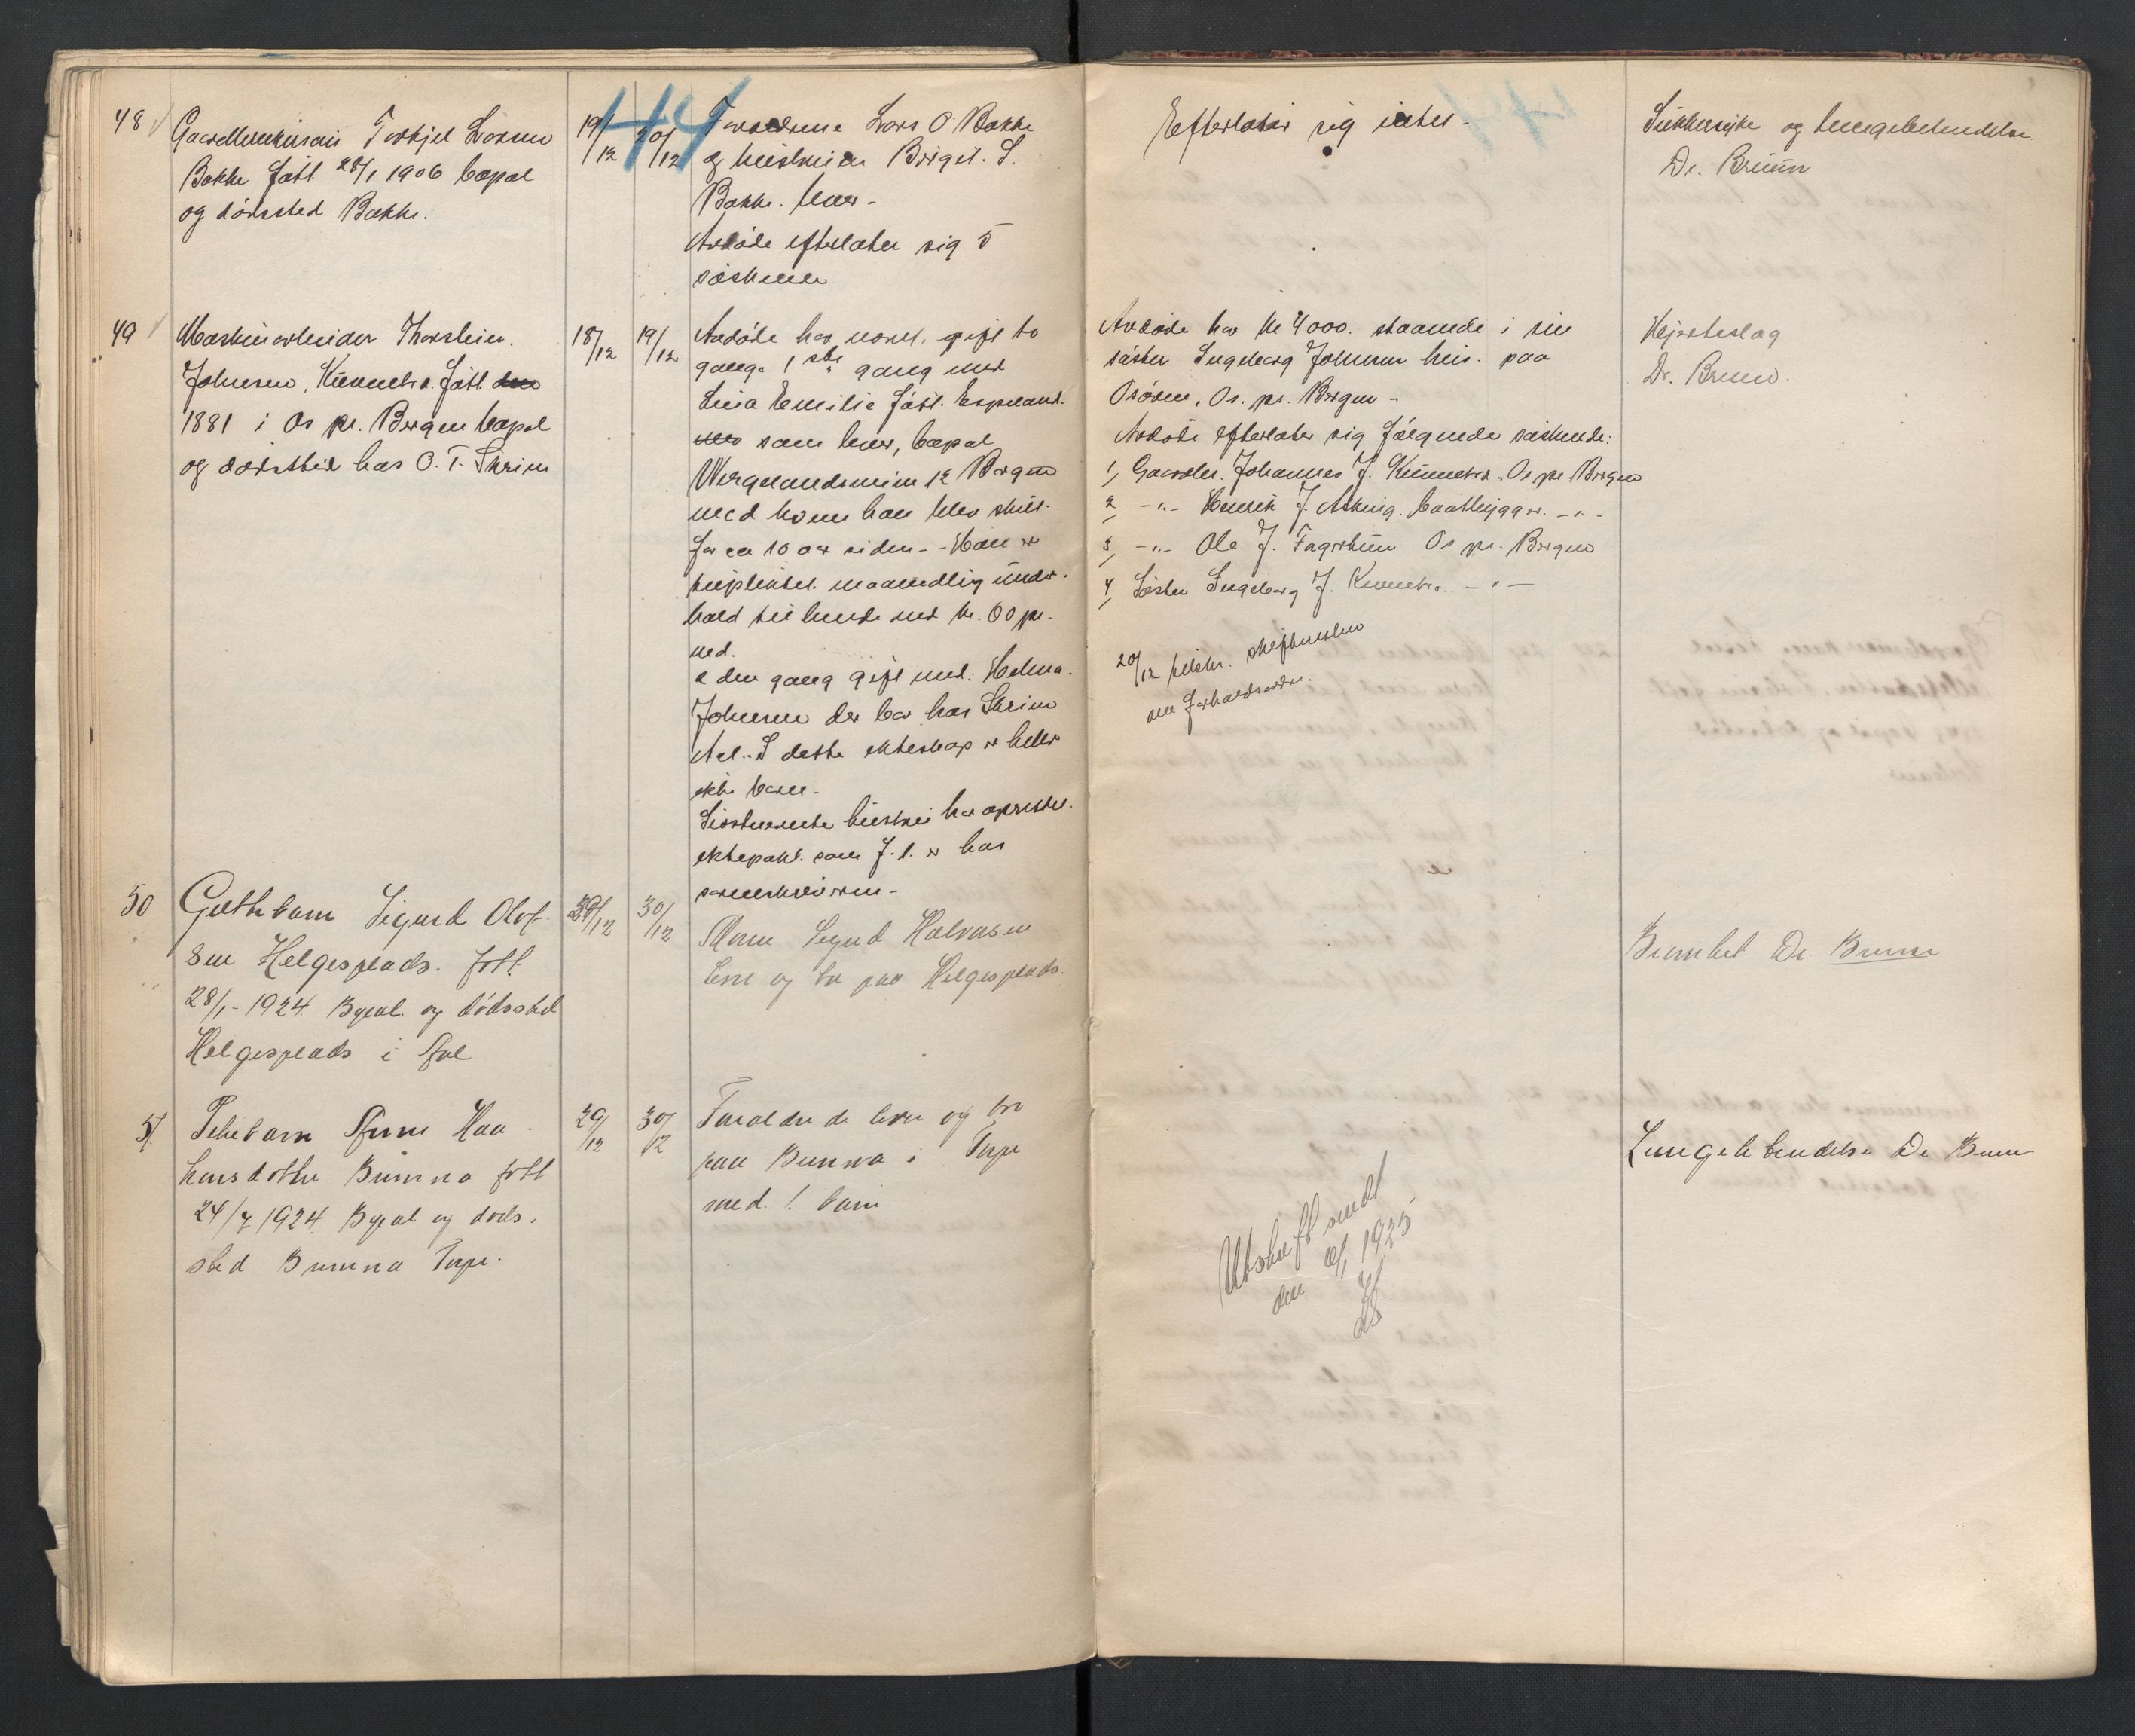 44
48
Torkjel Larsen
Bakke født 28/1 1906 bopæl
og dødssted Bakke.
19/12
20/12
Forældrene Lars O Bakke
og hustruen Birgit. L.
Bakke. lever -
Avdøde efterlater sig 5
søskende
Efterlater sig intet -
Sukkersyke og lungebetendelse
Dr. Bruun
49
Maskinarbeider Thorstein.
Johnsen, født den
1881 i Os pr. Bergen bopæl
og dødssted hos O. T. Skrim
18/12
19/12
Avdøde har været gift to
gange 1ste gang med
Lina Emilie født Espeland.
som lever, bopæl
Wergelandsveien 12 Bergen
med hvem han blev skilt.
for ca 10 aar siden - Han er
tilpliktet maanedlig under-
hold til hende med kr. 60 pr.
md.
2 den gang gift med. Helma.
Johnsen der bor hos Skrim
Aal. I dette ekteskap er heller
ikke barn -
Sidstnævnte hustru har oprettet.
ektepakt. som f. t. er hos
sorenskriveren -
Avdøde har kr 4000. staaende i sin
søster Ingeborg Johnsen hus. paa
Osøren, Os. pr. Bergen -
Avdøde efterlater sig følgende søskende:
1, Gaardbr. Johannes J. Os pr. Bergen
2, -"- Henrik J. Baatbygger. -"-
3, -"- Ole J. Os pr. Bergen
4, Søster Ingeborg J. -"-
20/12 tilskr. skifteretten
om forholdsordre.
Hjerteslag
Dr. Bruun.
50
Guttebarn Sigurd Olaf-
sen Helgesplads. født
28/1 - 1924. Bopæl. og dødssted
Helgesplads i Aal
29/12
30/12
Moren Sigrid Halvorsen
lever og bor paa Helgesplads.
Dr Bruun
51.
Pikebarn Haa-
konsdotter Brunna født
24/7 1924. Bopæl og døds-
sted Brunna Torpe.
29/12
30/12
Foraldrede lever og bor
paa Brunna i Torpe
med. 1 barn
Utskrift sendt
den 10/1 1925
Lungebetendelse Dr Bruun